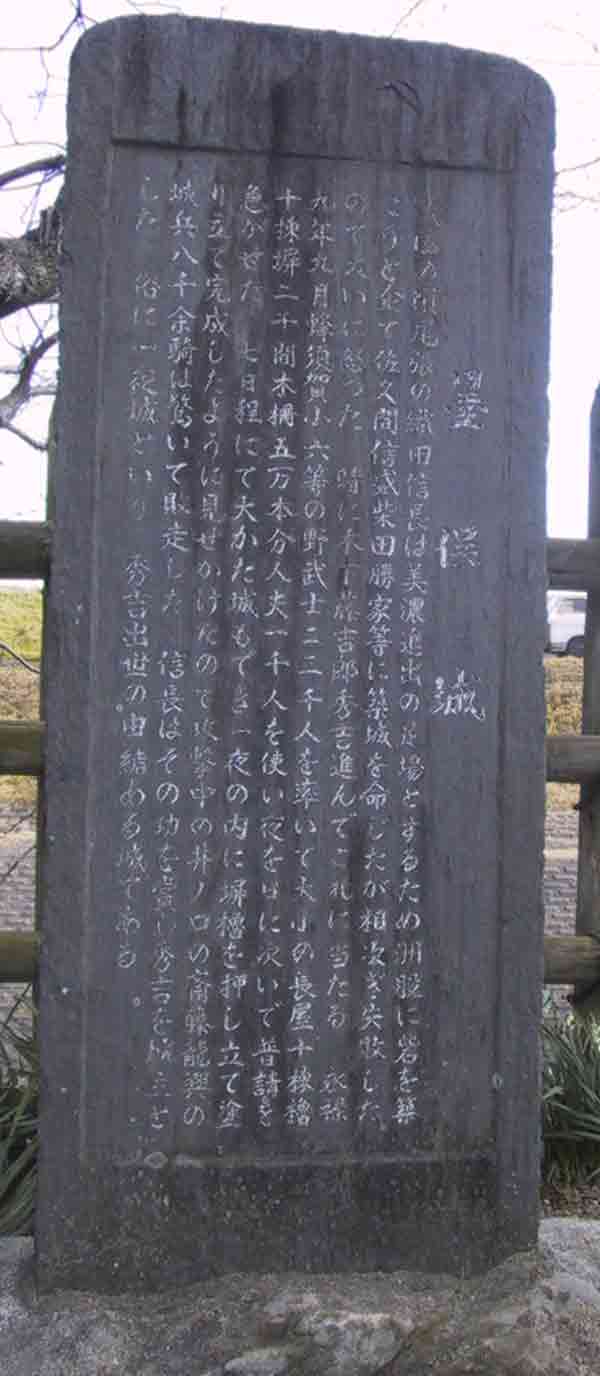 墨俣城
尾張の織田信長は美濃進出の足場とするため洲股に砦を築
こうと企て佐久間信盛柴田勝家等に築城を命じたが相次ぎ失敗した
ので大いに怒った 時に木下藤吉郎秀吉進んでこれに当たる 永禄
九年九月蜂須賀小六等の野武士二二千人を率いて大小の長屋十棟櫓
十棟塀二千間木柵五万本分人夫一千人を使い夜を日に次いで普請を
急がせた 七日程にて大かた城もでき一夜の内に塀櫓を押し立て塗
り立て完成したように見せかけたので攻撃中の井ノ口の斎藤龍興の
城兵八千余騎は驚いて敗走した 信長はその功を賞し秀吉を城主と
した 俗に一夜城といい 秀吉出世の由緒ある城である。